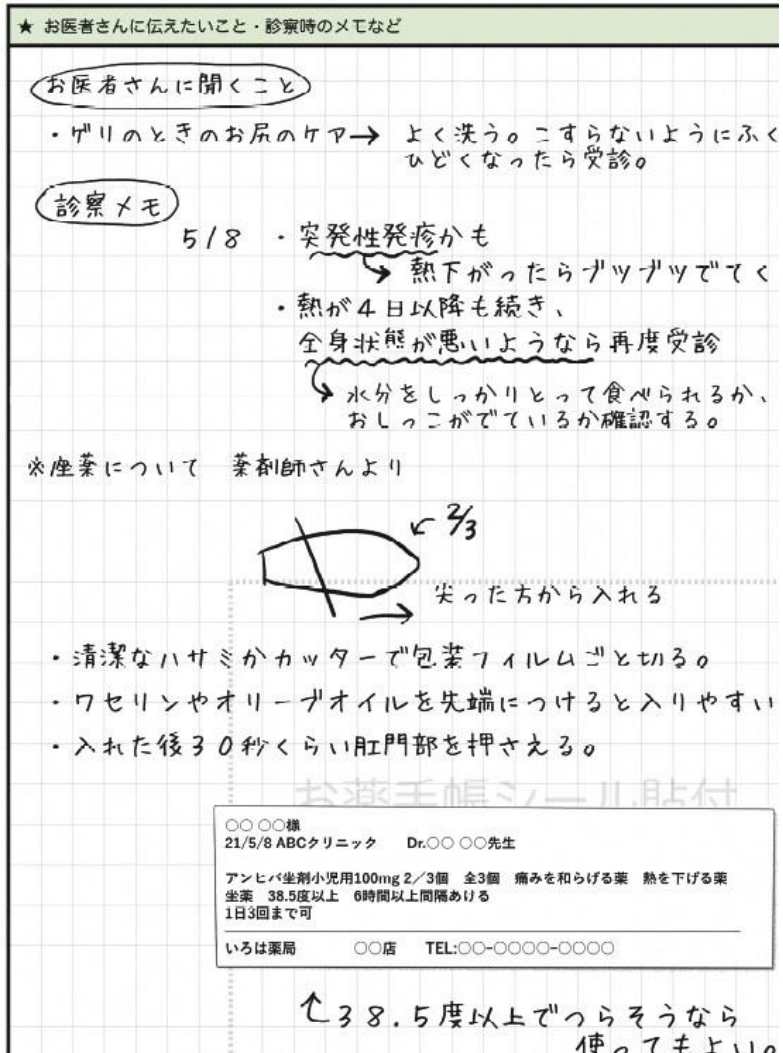 ★ お医者さんに伝えたいこと・診察時のメモなど
お医者さんに聞くこと
・ゲリのときのお尻のケア→ よく洗う。こすらないようにふく
ひどくなったら受診。
診察メモ
5/8 ・突発性発疹かも
熱下がったらブツブツでてく
・熱が4日以降も続き、
全身状態が悪いようなら再度受診
水分をしっかりとって食べられるか、
おしっこがでているか確認する。
※座薬について 薬剤師さんより
2/3
尖った方から入れる
・清潔なハサミかカッターで包装フィルムごと切る。
・ワセリンやオリーブオイルを先端につけると入りやすい
・入れた後30秒くらい肛門部を押さえる。
お薬手帳シール貼付
○○ ○○様
21/5/8 ABCクリニック Dr.○○ ○○先生
アンヒバ坐剤小児用100mg 2/3個 全3個 痛みを和らげる薬 熱を下げる薬
坐薬 38.5度以上 6時間以上間隔あける
1日3回まで可
いろは薬局 ○○店 TEL:○○-○○○○-○○○○
↑38.5度以上でつらそうなら
使ってもよい。